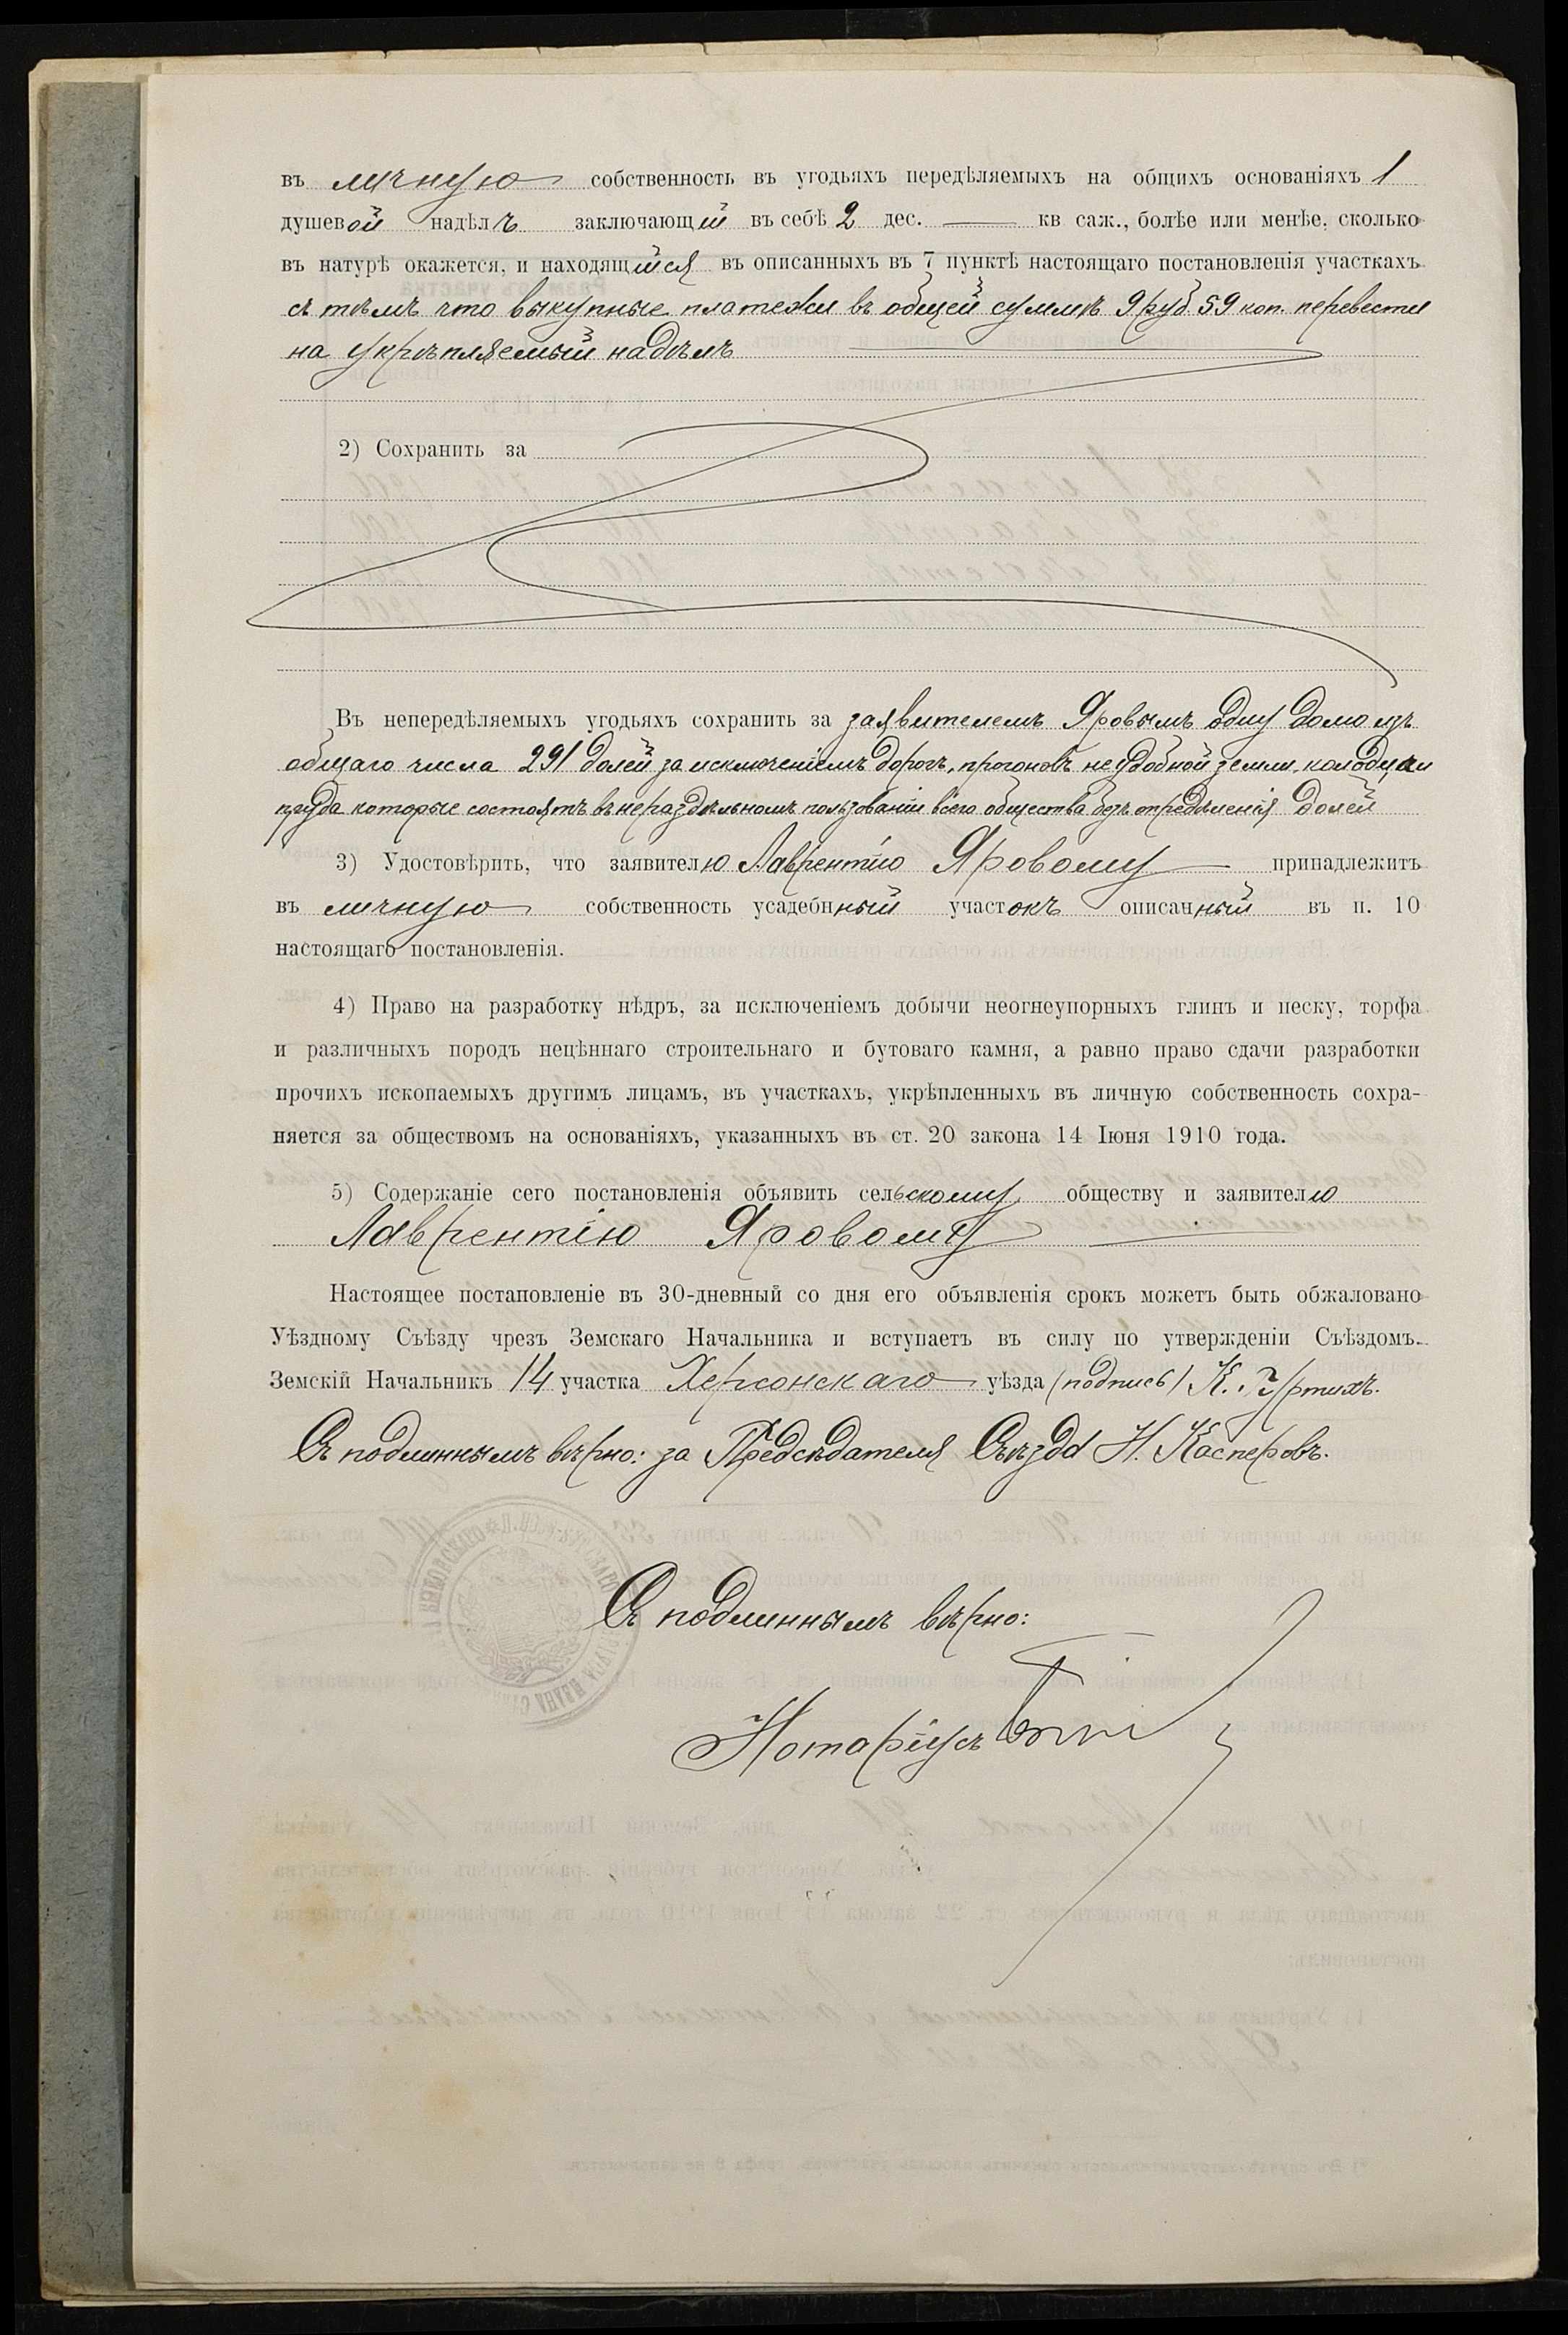 въ личную собственность въ угодьяхъ передѣляемыхъ на общихъ основаніяхъ 1
душевой надѣлъ заключающій въ себѣ 2 дес. —— кв саж., болѣе или менѣе, сколько
въ натурѣ окажется, и находящійся въ описанныхъ въ 7 пунктѣ настоящаго постановленія участкахъ
съ тѣмъ что выкупные платежи въ общей суммѣ 9 руб 59 коп. перевести
на укрѣпляемый надѣлъ
2) Сохранить за
Въ непередѣляемыхъ угодьяхъ сохранить за заявителемъ Яровымъ одну долю изъ
общаго числа 291 долей за исключеніемъ дорогъ, прогоновъ неудобной земли, колодца и
пруда которые состоятъ въ нераздѣльномъ пользованіи всего общества безъ опредѣленія долей
3) Удостовѣрить, что заявителю Лаврентію Яровому принадлежитъ
въ личную собственность усадебнный участокъ описанный въ п. 10
настоящаго постановленія.
4) Право на разработку нѣдръ, за исключеніемъ добычи неогнеупорныхъ глинъ и песку, торфа
и различныхъ породъ нецѣннаго строительнаго и бутоваго камня, а равно право сдачи разработки
прочихъ ископаемыхъ другимъ лицамъ, въ участкахъ, укрѣпленныхъ въ личную собственность сохра-
няется за обществомъ на основаніяхъ, указанныхъ въ ст. 20 закона 14 Іюня 1910 года.
5) Содержаніе сего постановленія объявить сельскому обществу и заявителю
Лаврентію Яровому
Настоящее постановленіе въ 30-дневный со дня его объявленія срокъ можетъ быть обжаловано
Уѣздному Съѣзду чрезъ Земскаго Начальника и вступаетъ въ силу по утвержденіи Съѣздомъ.
Земскій Начальникъ 14 участка Херсонскаго уѣзда (подпись) К.
Съ подлиннымъ вѣрно: за Предсѣдателя Съѣзда Н. Касперовъ.
Съ подлиннымъ вѣрно:
Нотаріусъ